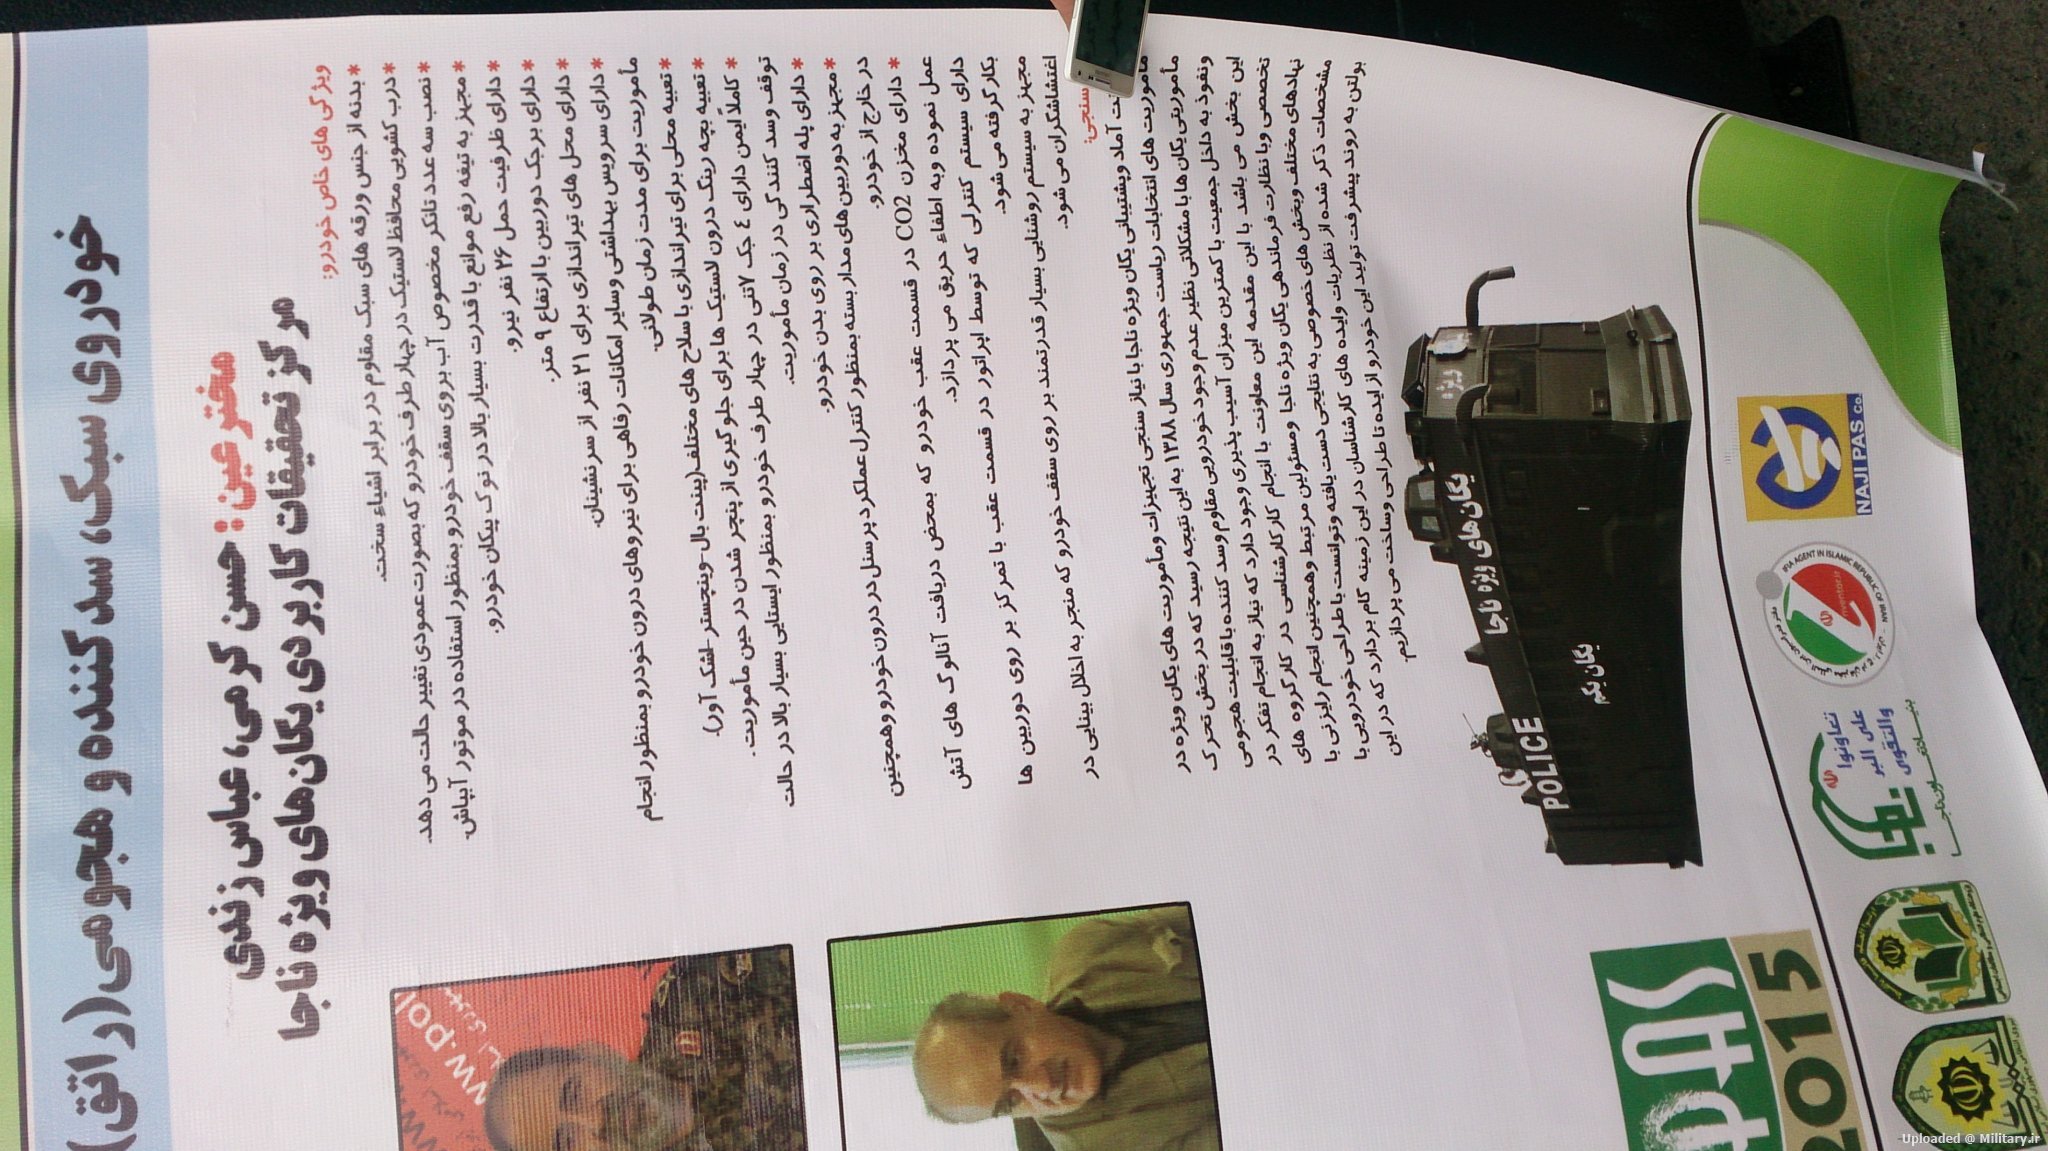 خودروی سبک، سد کننده و هجومی (راتق)
مخترعین: حسن کرمی، عباس زندی
مرکز تحقیقات کاربردی یگان‌های ویژه ناجا
ویژگی های خاص خودرو:
* بدنه از جنس ورقه های سبک مقاوم در برابر اشیاء سخت.
* درب کشویی محافظ لاستیک در چهار طرف خودرو که بصورت عمودی تغییر حالت می دهد.
* نصب سه عدد تانکر مخصوص آب بروی سقف خودرو بمنظور استفاده در موتور آبپاش.
* مجهز به تیغه رفع موانع با قدرت بسیار بالا در نوک پیکان خودرو.
* دارای ظرفیت حمل ۲۶ نفر نیرو.
* دارای برجک دوربین با ارتفاع ۹ متر.
* دارای محل های تیراندازی برای ۲۱ نفر از سرنشینان.
* دارای سرویس بهداشتی وسایر امکانات رفاهی برای نیروهای درون خودرو بمنظور انجام
مأموریت برای مدت زمان طولانی.
* تعبیه محلی برای تیراندازی با سلاح های مختلف(پینت بال-وینچستر-اشک آور).
* تعبیه بچه رینگ درون لاستیک ها برای جلوگیری از پنچر شدن در حین مأموریت.
* کاملاً ایمن دارای ٤ جک ۷تنی در چهار طرف خودرو بمنظور ایستایی بسیار بالا در حالت
توقف وسد کنندگی در زمان مأموریت.
* دارای پله اضطراری بر روی بدن خودرو.
* مجهز به دوربین های مدار بسته بمنظور کنترل عملکرد پرسنل در درون خودرو وهمچنین
در خارج از خودرو.
* دارای مخزن CO2 در قسمت عقب خودرو که بمحض دریافت آنالوگ های آتش
عمل نموده وبه اطفاء حریق می پردازد.
دارای سیستم کنترلی که توسط اپراتور در قسمت عقب با تمرکز بر روی دوربین ها
بکار گرفته می شود.
مجهز به سیستم روشنایی بسیار قدرتمند بر روی سقف خودرو که منجر به اخلال بینایی در
اغتشاشگران می شود.
سنجی:
آماد وپشتیبانی یگان ویژه ناجا با نیاز سنجی تجهیزات ومأموریت های یگان ویژه در
مأموریت های انتخابات ریاست جمهوری سال ۱۳۸۸ به این نتیجه رسید که در بخش تحرک
مأموریتی یگان ها با مشکلاتی نظیر عدم وجود خودرویی مقاوم وسد کننده با قابلیت هجومی
ونفوذ به داخل جمعیت با کمترین میزان آسیب پذیری وجود دارد که نیاز به انجام تفکر در
این بخش می باشد با این مقدمه این معاونت با انجام کار کارشناسی در کارگروه های
تخصصی وبا نظارت فرماندهی یگان ویژه ناجا ومسئولین مرتبط وهمچنین انجام رایزنی با
نهادهای مختلف وبخش های خصوصی به نتایجی دست یافته وتوانست با طراحی خودرویی با
مشخصات ذکر شده از نظریات وایده های کارشناسان در این زمینه گام بردارد که در این
بولتن به روند پیشرفت تولید این خودرو از ایده تا طراحی وساخت می پردازیم.
ویژه
یگان‌های ویژه ناجا
POLICE
یگان یکم
NAJI PAS Co.
IFIA AGENT IN ISLAMIC REPUBLIC OF IRAN
inventor.ir
تعاونوا
علی البر
والتقوی
بنیاد تعاون ناجا
2015
www.pol
Uploaded @ Military.ir